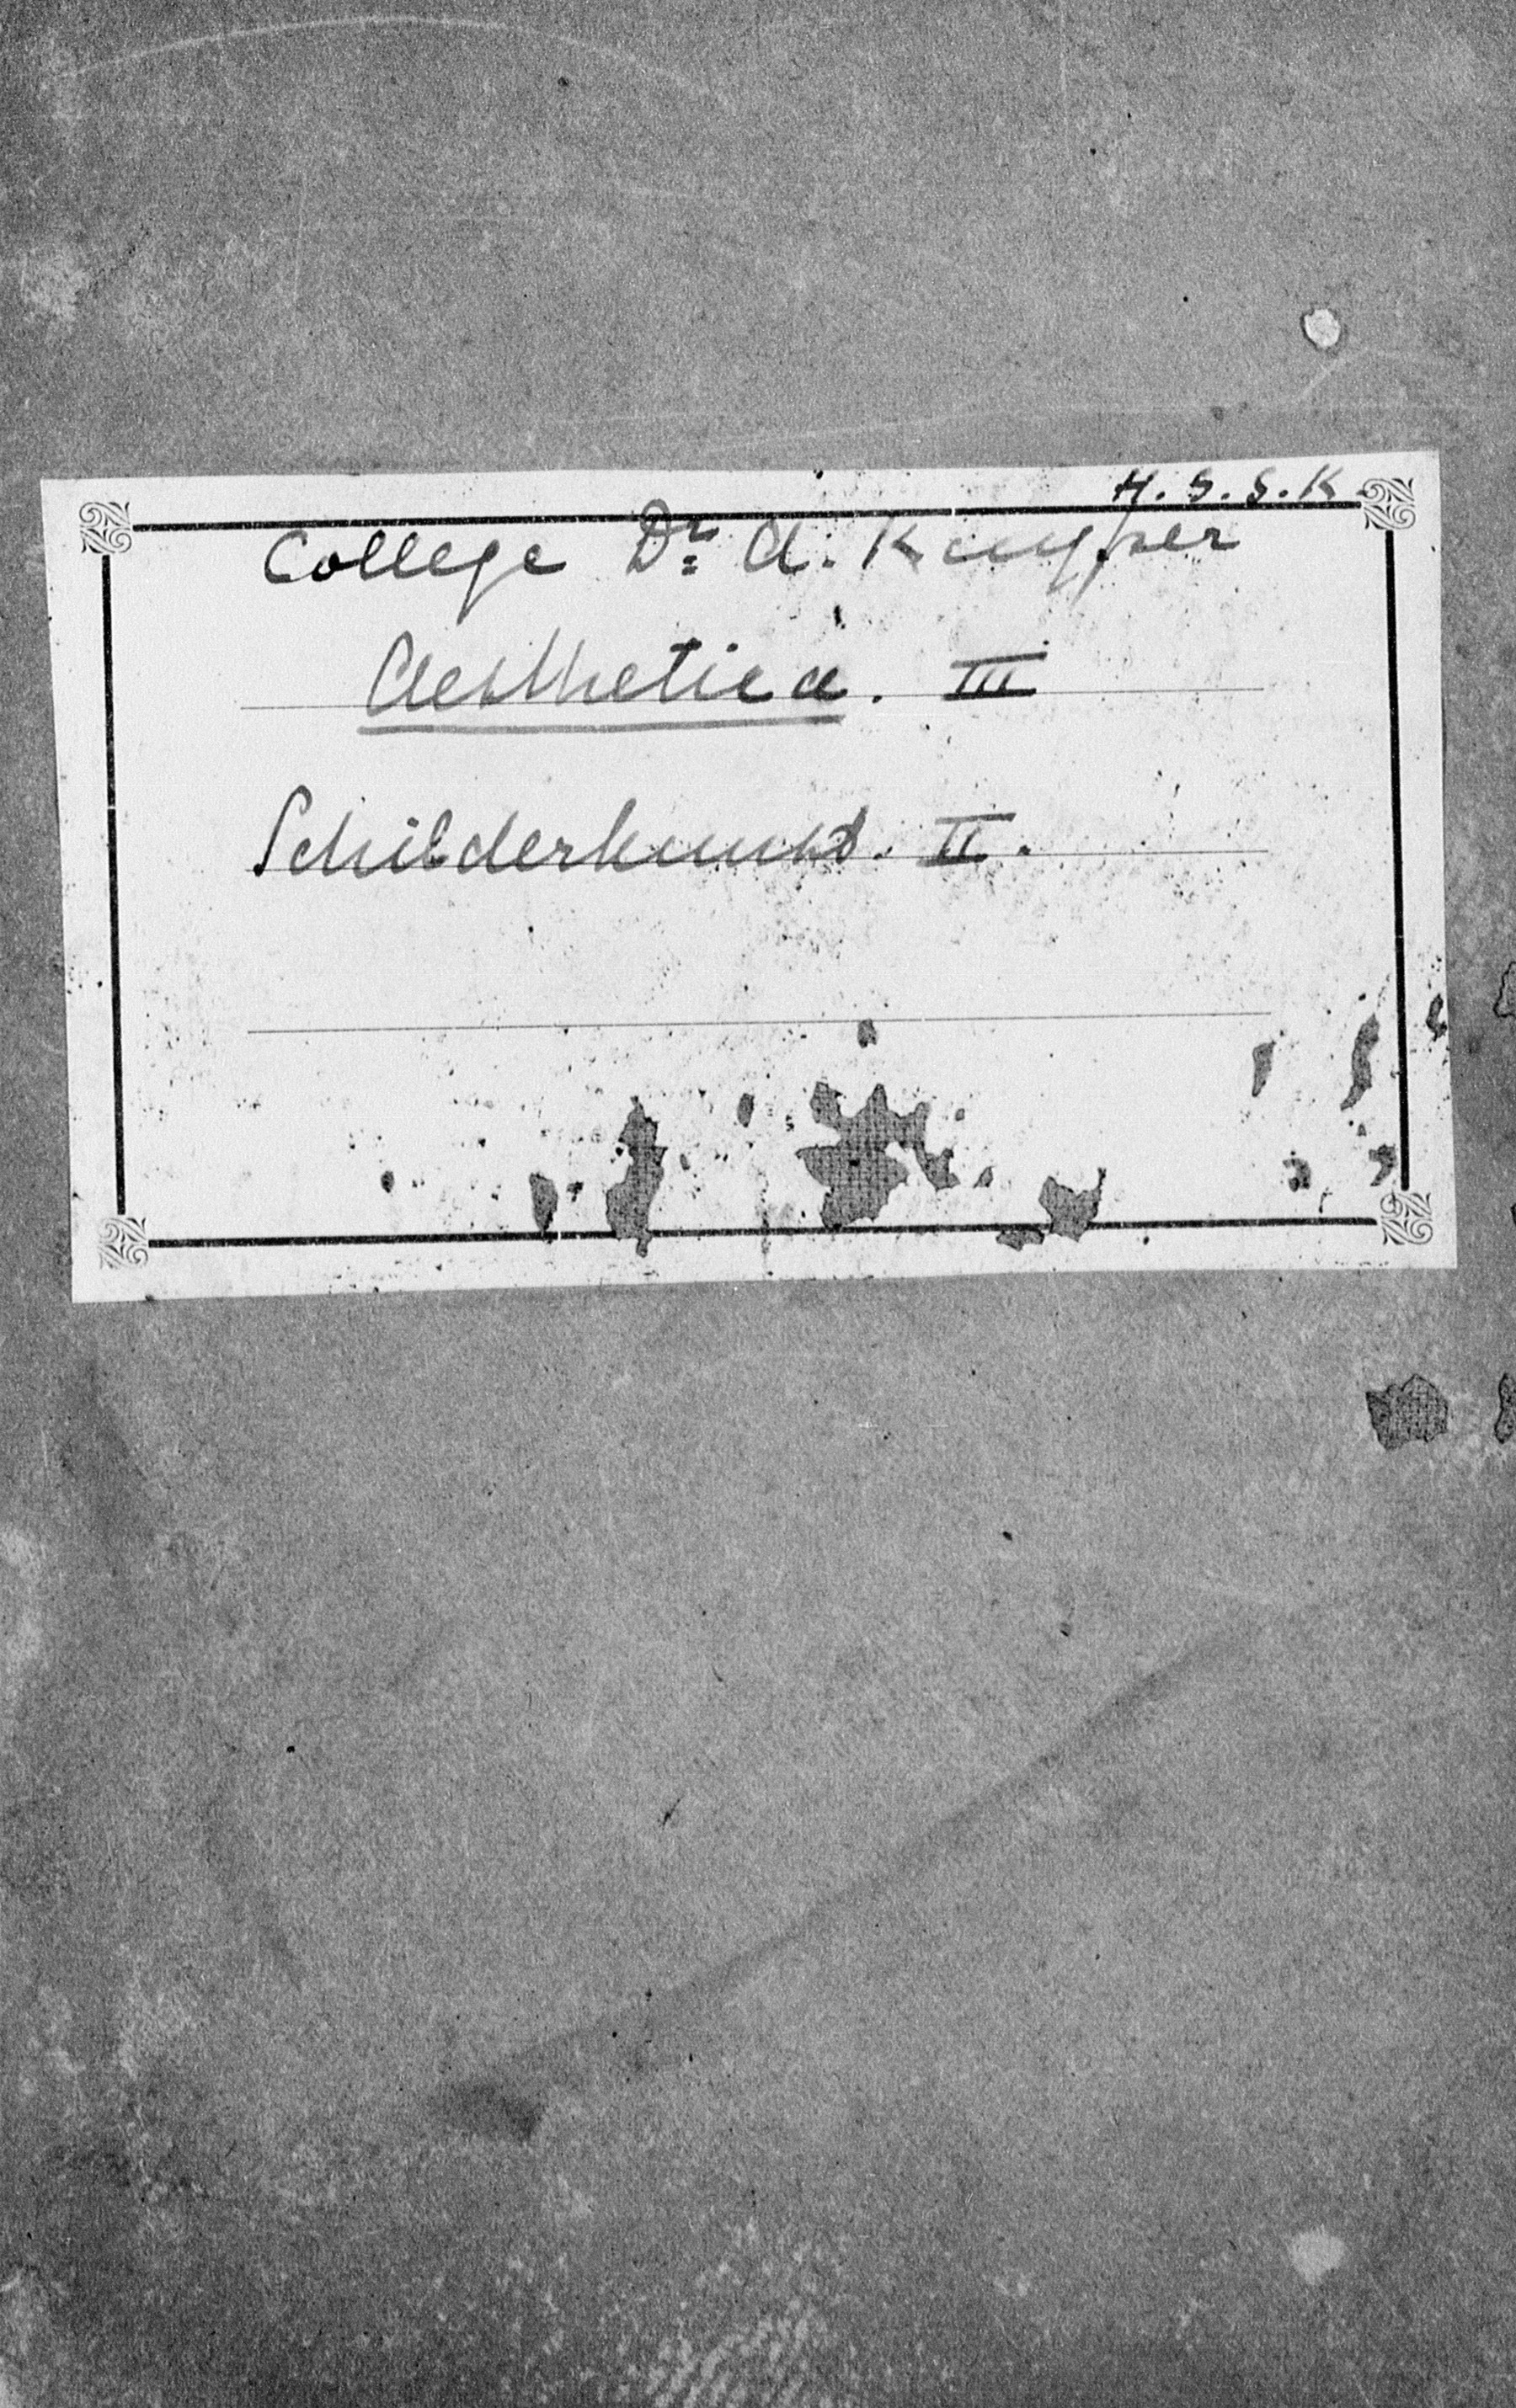 H. S. S. K.
College Dr. A. Kuyper
Aesthetica. III
Schilderkunst. II.